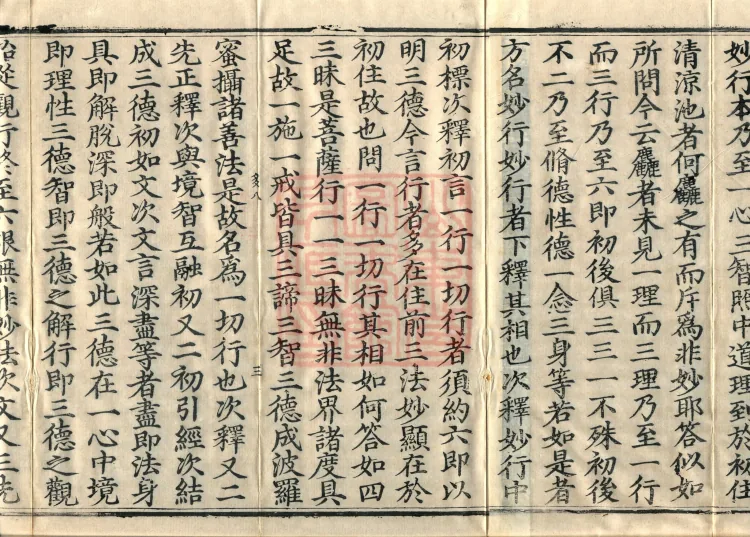 妙行本乃至一心三智照中道理到於初住
清涼池者何麤之有而斥爲非妙耶答似如
所問今云麤者未見一理而三理乃至一行
而三行乃至六即初後俱三三一不殊初後
不二乃至脩德性德一念三身等若如是者
方名妙行妙行者下釋其相也次釋妙行中
初標次釋初言一行一切行者須約六即以
明三德今言行者多在住前三法妙顯在於
初住故也問一行一切行其相如何答如四
三昧是菩薩行一一三昧無非法界諸度具
足故一施一戒皆具三諦三智三德成波羅
八
三
蜜攝諸善法是故名爲一切行也次釋又二
先正釋次與境智互融初又二初引經次結
成三德初如文次文言深盡等者盡即法身
具即解脫深即般若如此三德在一心中境
即理性三德智即三德之解行即三德之觀
始從觀行終至六根無非妙法次文又三先